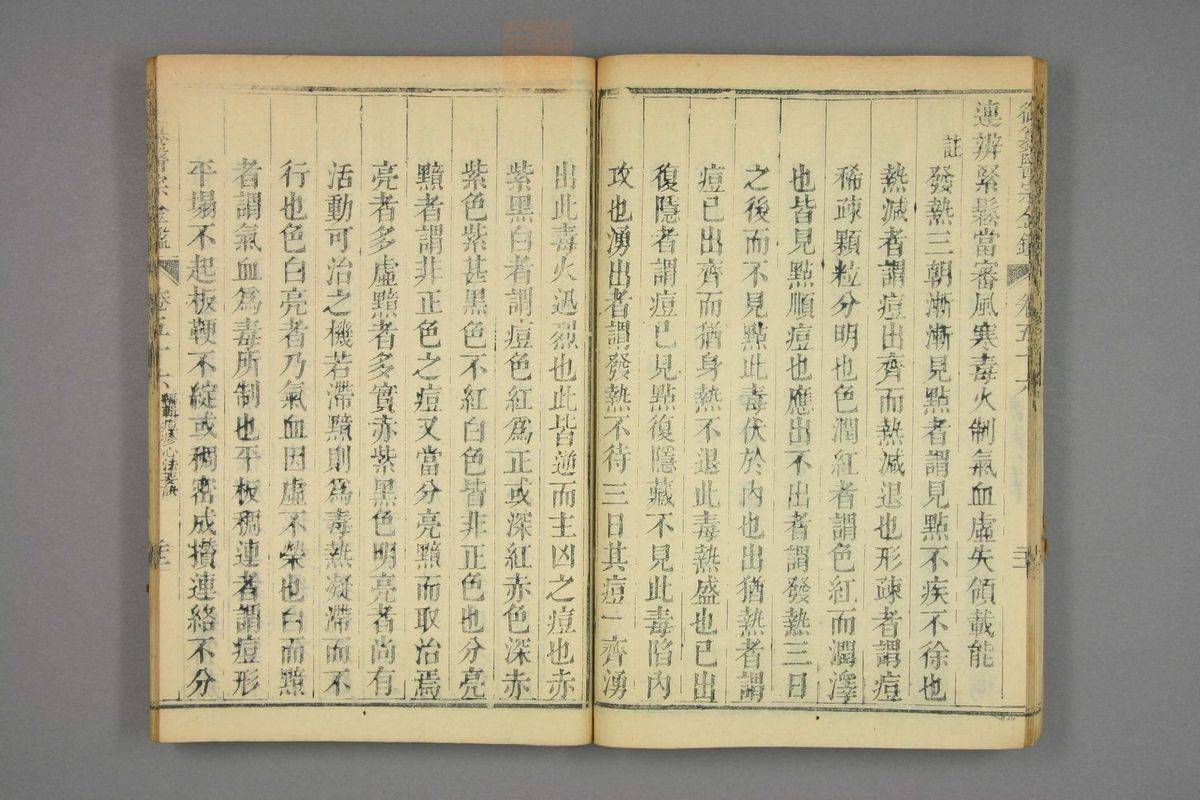 御纂醫宗金鑑 卷五十六
連辨緊鬆當審風寒毒火制氣血虛失領載能
註
發熱三朝漸漸見點者謂見點不疾不徐也
熱減者謂痘出齊而熱減退也形疎者謂痘
稀疎顆粒分明也色潤紅者謂色紅而潤澤
也皆見點順痘也應出不出者謂發熱三日
之後而不見點此毒伏於內也出猶熱者謂
痘已出齊而猶身熱不退此毒熱盛也已出
復隱者謂痘已見點復隱藏不見此毒陷內
攻也湧出者謂發熱不待三日其痘一齊湧
出此毒火迅烈也此皆逆而主凶之痘也赤
紫黑白者謂痘色紅爲正或深紅赤色深赤
紫色紫甚黑色不紅白色皆非正色也分亮
黯者謂非正色之痘又當分亮黯而取治焉
亮者多虛黯者多實赤紫黑色明亮者尚有
活動可治之機若滯黯則爲毒熱凝滯而不
行也色白亮者乃氣血因虛不榮也白而黯
者謂氣血爲毒所制也平板稠連者謂痘形
平塌不起板鞕不綻或稠密成攢連絡不分
醫宗金鑑 卷五十六 編輯痘疹心法要訣